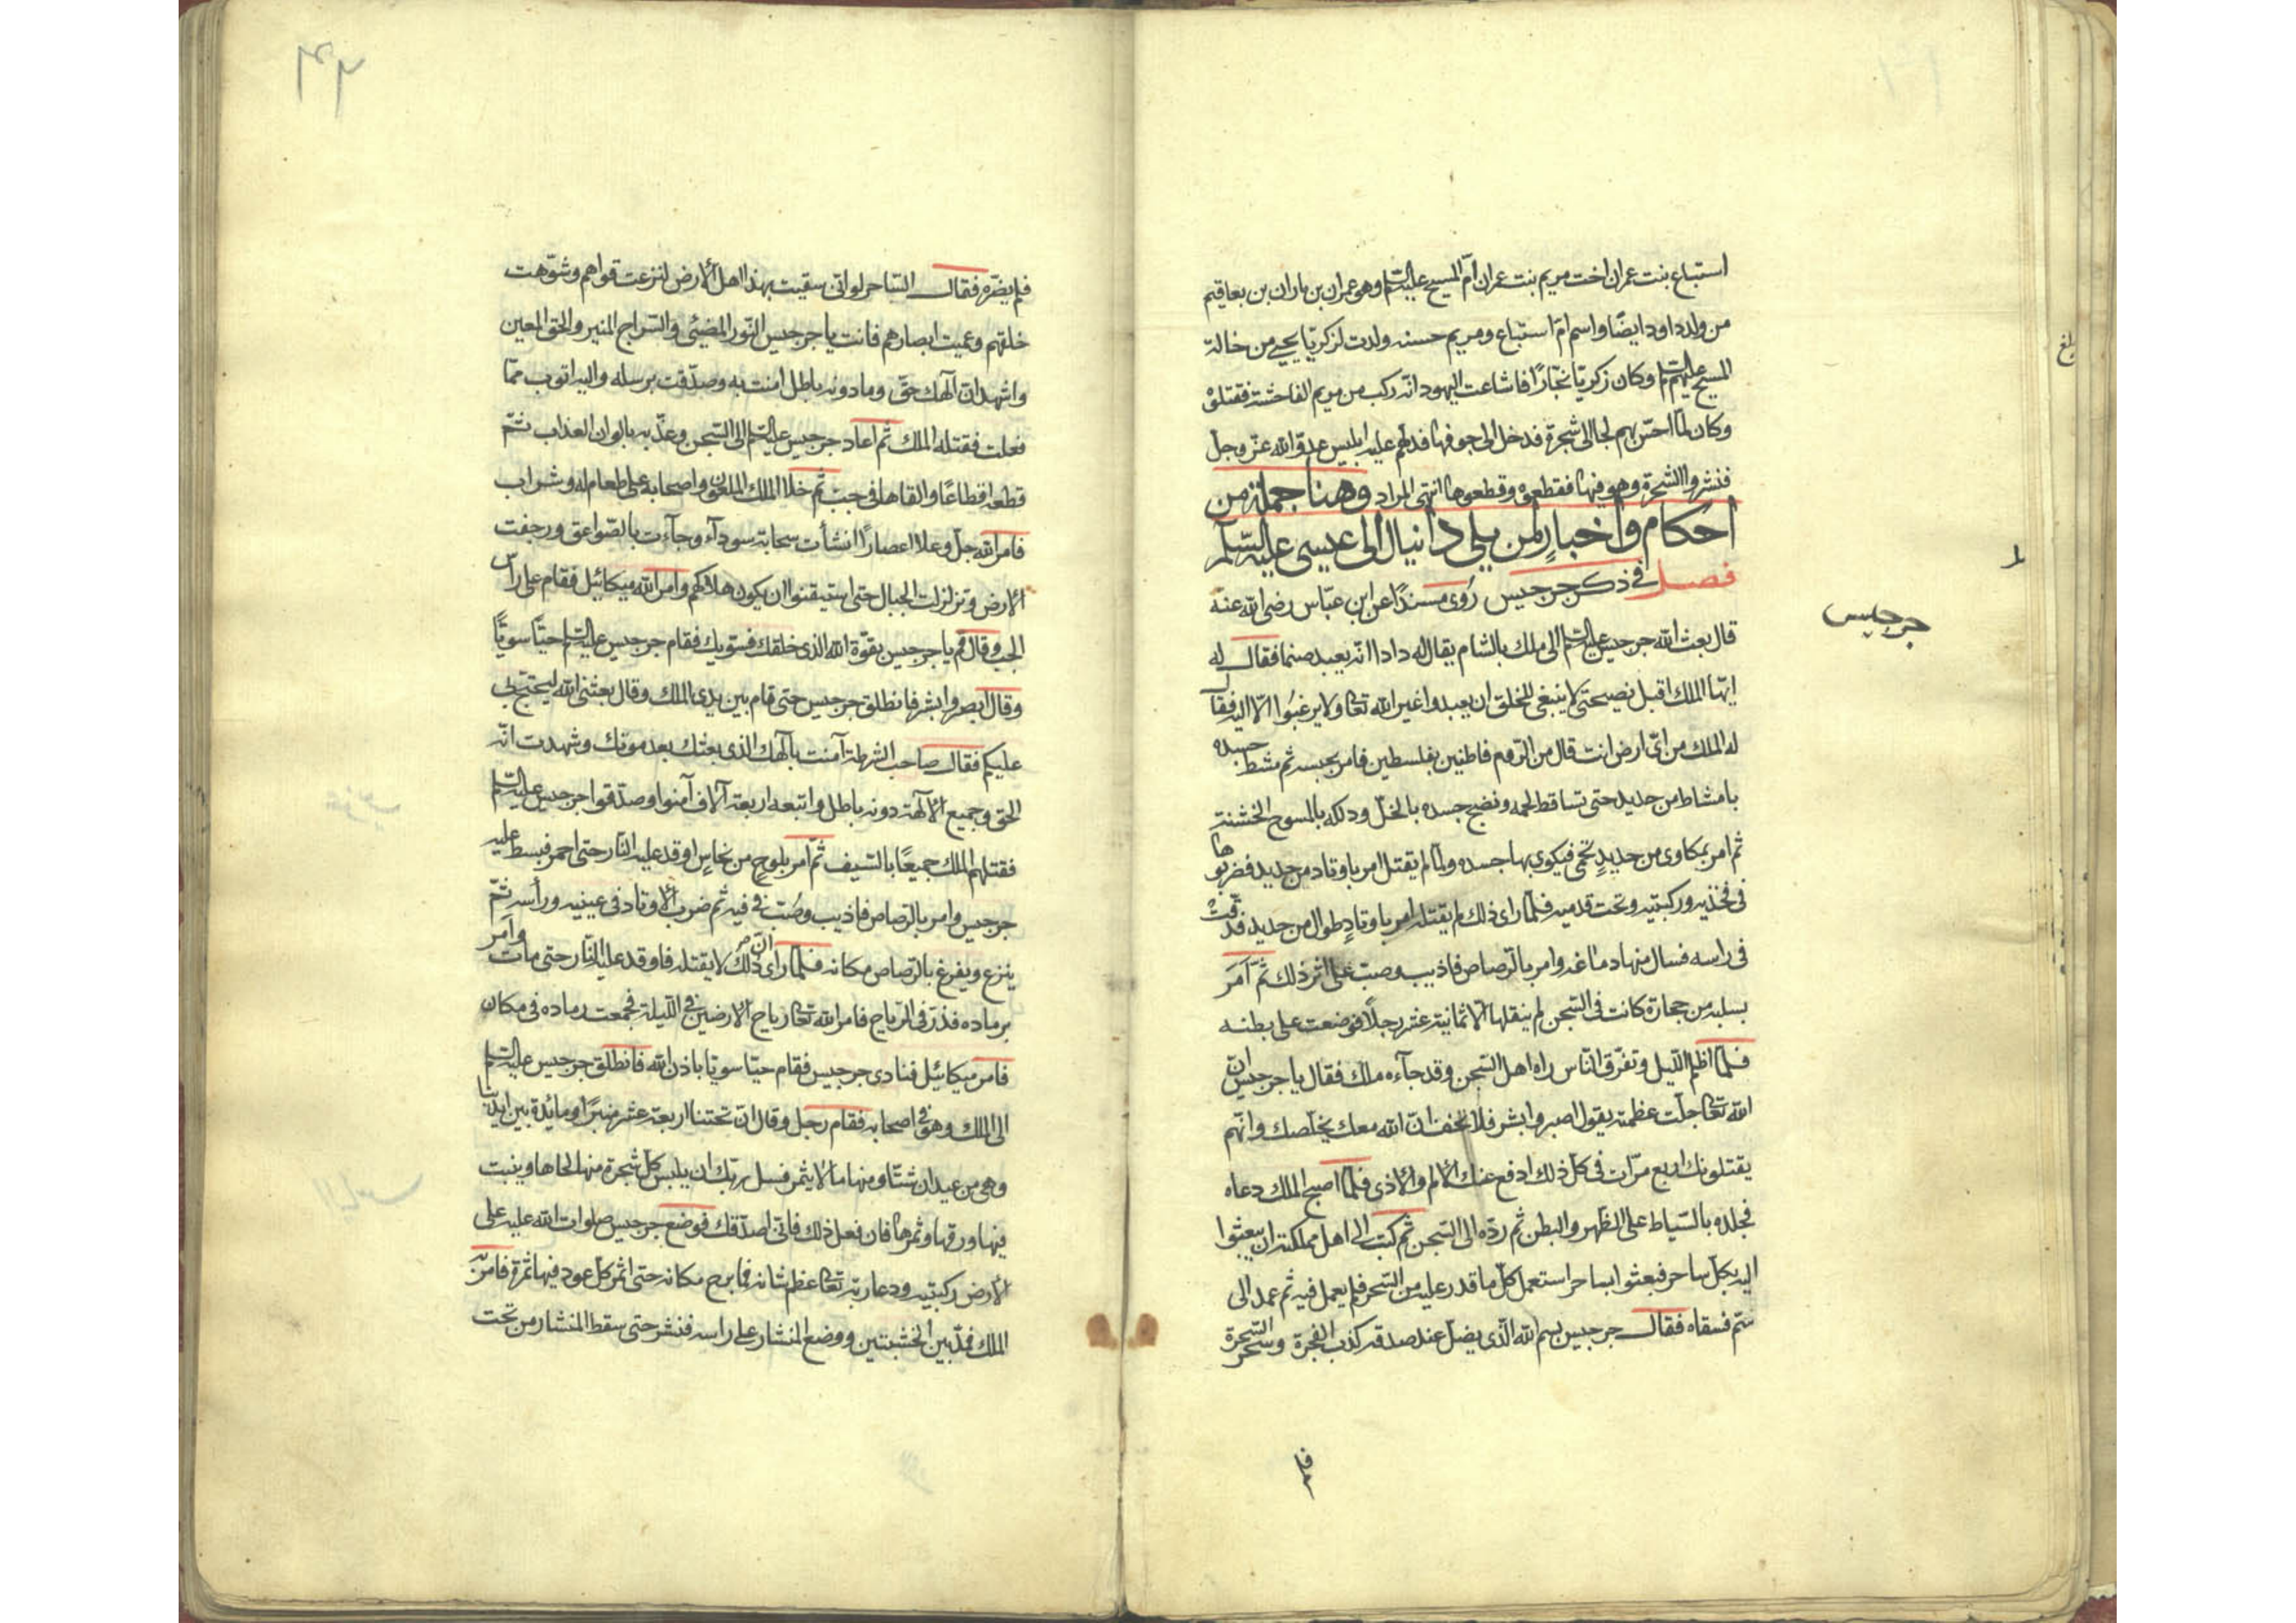 استباع بنت عمران اخت مريم بنت عمران امّ المسيح عليه السّلم وهو عمران بن ماران بن يعاقيم
من ولد داود ايضًا واسم امّ استباع ومريم حسنه ولدت لزكريّا يحيى من خالة
المسيح عليهم السّلم وكان زكريّا نجّارًا فاشاعت اليهود انّه ركب من مريم الفاحشة فقتلوهُ
وكان لمّا احسّ بهم لجا الى شجرة فدخل الى جوفها فدلّهم عليه ابليس عدوّ الله عزّ وجلّ
فنشروا الشجرة وهو فيها فقطعوه وقطعوها انتهى المراد وهنا جملة من
احكام واخبارٍ لمن يلى دانيال الى عيسى عليه السّلم
فصل في ذكر جرجيس رُوى مسندًا عن ابن عبّاس رضى الله عنه
جرجيس
قال بعث الله جرجيس عليه السّلم الى ملك بالشام يقال له دادا انّه يعبد صنما فقال له
ايّها الملك اقبل نصيحتى لا ينبغى للخلق ان يعبدوا غير الله تعالى ولا يرغبُوا الّا اليه فقال
له الملك من اىّ ارض انت قال من الرّوم قاطنين بفلسطين فامر بحبسه ثم مشط جسده
بامشاط من حديد حتى تساقط لحمه ونضح جسده بالخلّ ودلكه بالمسوح الخشنة
ثم امر بمكاوى من حديدٍ تحمى فيكوى بها جسده ولمّا لم يقتل امر باوتاد من حديد فضربوها
فى فخذيه وركبتيه وتحت قدميه فلمّا راى ذلك لم يقتله امر باوتادٍ طوال من حديد فدقّت
فى راسه فسال منها دماغه وامر بالرّصاص فاذيب وصبّ على اثر ذلك ثمّ اَمَرَ
بسلبه من حجارة كانت فى السّجن لم ينقلها الّا ثمانية عشر رجلًا فوضعت على بطنه
فلمّا اظلم اللّيل وتفرّق النّاس راه اهل السّجن وقد جآءه ملك فقال يا جرجيس انّ
الله تعالى جلّت عظمته يقول اصبر وابشر فلا تخف انّ الله معك يخلّصك وانّهم
يقتلونك اربع مرّات فى كلّ ذلك ادفع عنك الألم والأذى فلمّا اصبح الملك دعاه
فجلده بالسّياط على الظّهر والبطن ثم ردّه الى السّجن ثم كتب الى اهل مملكته ان يبعثوا
اليه بكلّ ساحر فبعثوا ساحر استعمل كلّ ما قدر عليه من السّحر فلم يعمل فيه ثم عمد الى
سمّ فسقاه فقال جرجيس بسم الله الّذى يضلّ عند صدقه كذب الفجرة وسحر السّحرة
فلم يضرّه فقال السّاحر لو انّى سقيت بهذا اهل الأرض لنزعت قواهم وشوّهت
خلقهم وعميت ابصارهم فانت يا جرجيس النّور المضيئ والسّراج المنير والحق المعين
واشهد انّ الهك حقّ وما دونه باطل امنت به وصدّقت برسله واليه اتوب ممّا
فعلت فقتله الملك ثم اعاد جرجيس عليه السّلم الى السّجن وعذّبه بالوان العذاب ثمّ
قطعه اقطاعًا والقاها فى جبّ ثم خلا الملك الملعون واصحابه على طعام له وشراب
فامر الله جلّ وعلا اعصارًا انشأت سحابة سودآء وجآءت بالصّواعق ورجفت
الأرض وتزلزلت الجبال حتى استيقنوا ان يكون هلاكهم وامر الله ميكائيل فقام على راس
الجبّ وقال قم يا جرجيس بقوّة الله الذى خلقك فسوّيك فقام جرجيس عليه السّلم حيًّا سويًّا
وقال ابصر وابشر فانطلق جرجيس حتى قام بين يدى الملك وقال بعثنى الله ليحتجّ بى
عليكم فقال صاحب الشرطة آمنت بالهك الذى بعثك بعد موتك وشهدت انّه
الحق وجميع الألهة دونه باطل واتبعه اربعة آلاف آمنوا وصدّقوا جرجيس عليه السّلم
فقتلهم الملك جميعًا بالسّيف ثمّ امر بلوحٍ من نحاسٍ اوقد عليه النّار حتى احمر فبسط عليه
جرجيس وامر بالرّصاص فاذيب وصُبّ فى فيه ثم ضرب الأوتاد فى عينيه ورأسه ثمّ
ينزع ويفرغ بالرّصاص مكانه فلمّا راى انّ ذلك لا يقتله فاوقد عليه النّار حتى مات وامر
برماده فذرّ فى الرّياح فامر الله تعالى رياح الارضين فى اللّيلة فجمعت رماده فى مكان
فامر ميكائيل فنادى جرجيس فقام حيّا سويّا باذن الله فانطلق جرجيس عليه السّلم
الى الملك وهو فى اصحابه فقام رجل وقال انّ تحتنا اربعة عشر منبرًا ومائدة بين ايدينا
وهى من عيدان شتّا ومنها ما لا يثمر فسل ربّك ان يلبس كلّ شجرة منها لحاها وينبت
فيها ورقها وثمرها فان فعل ذلك فانّى اصدّقك فوضع جرجيس صلوات الله عليه على
الأرض ركبتيه ودعا ربّه تعالى عظم شانه فما برح مكانه حتى اثمر كلّ عود فيها ثمرة فامر به
الملك فمدّ بين الخشبتين ووضع المنشار على راسه فنشر حتى سقط المنشار من تحت